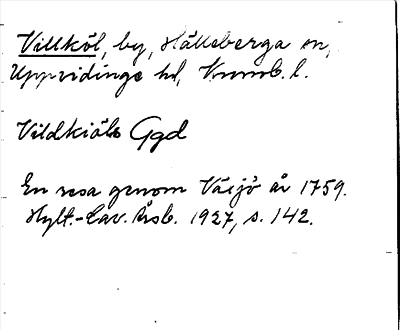 Villköl, by, Hälleberga sn,
Uppvidinge hd, Kronob. l.
Vildkiöls Ggd
En resa genom Växjö år 1759.
Hylt.-Cav. Årsb. 1927, s. 142.